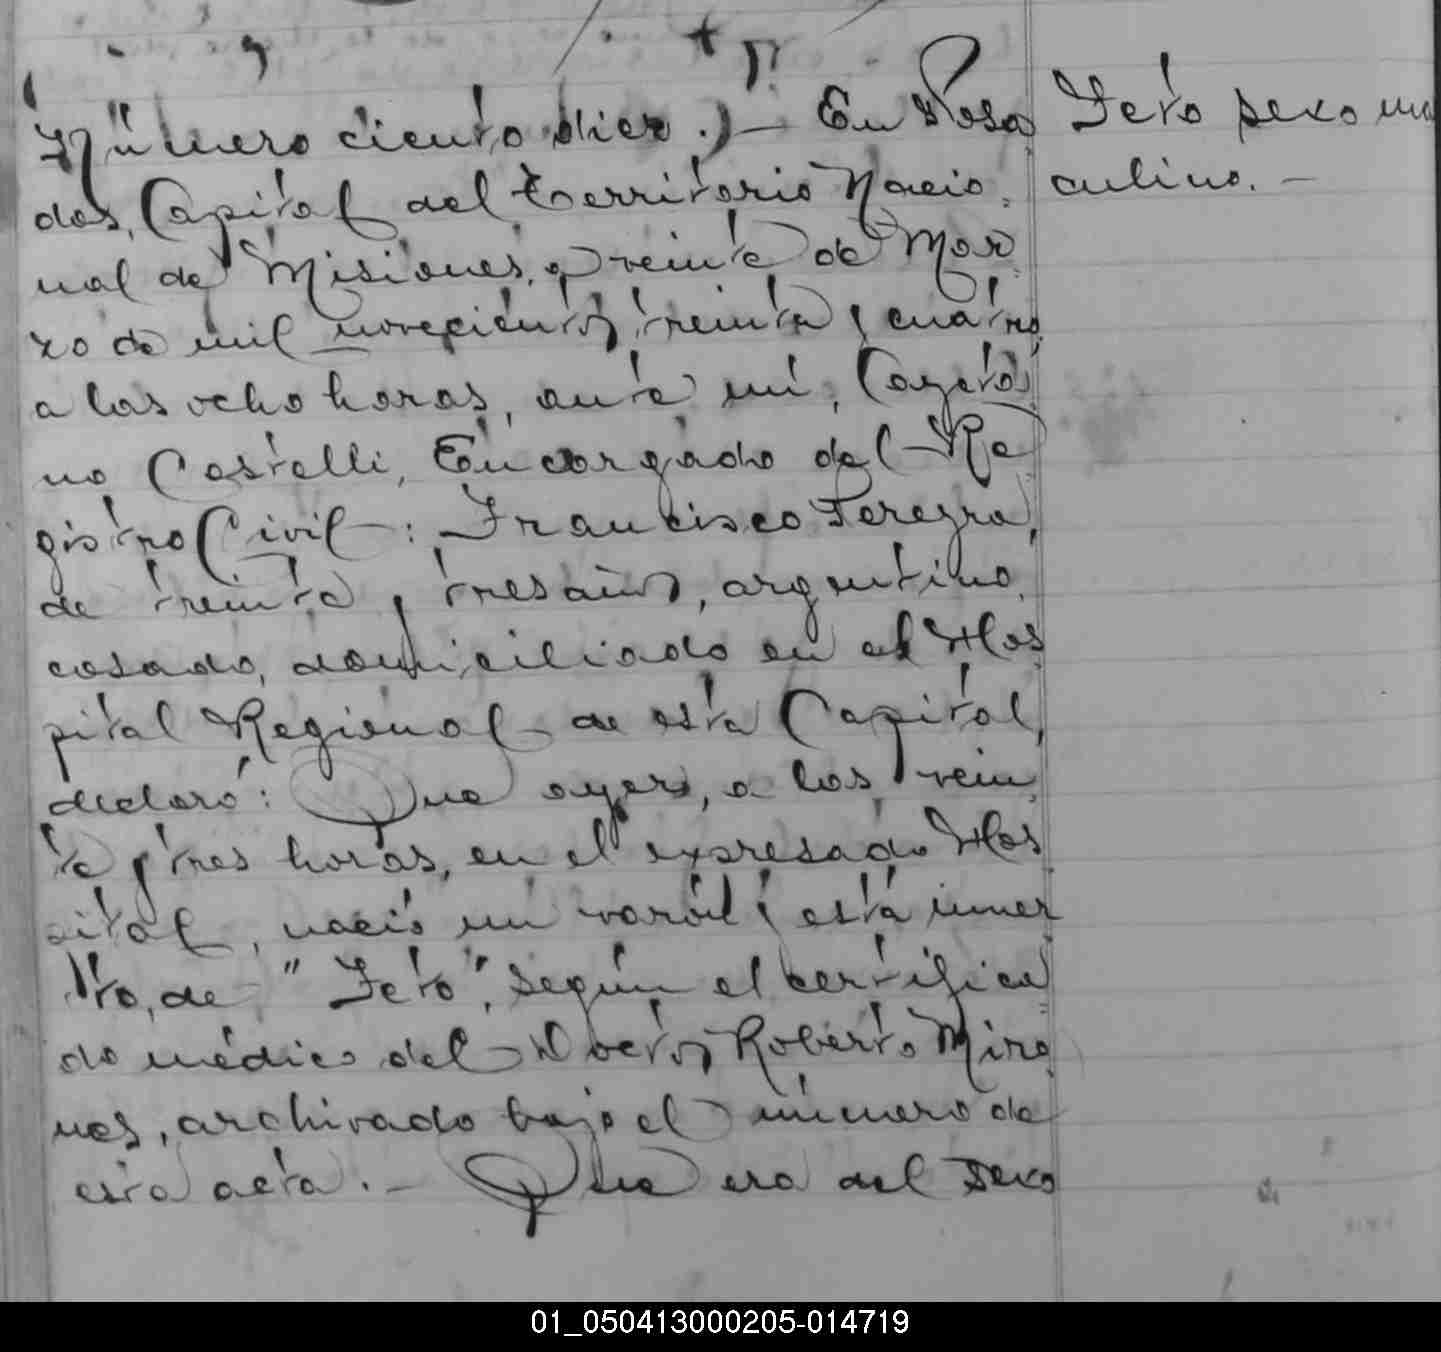 Número ciento diez.)— En Posa
das, Capital del Territorio Nacio
nal de Misiones, a veinte de Mar
zo de mil novecientos treinta y cuatro
a las ocho horas, ante mi, Cayeta
no Castelli, Encargado del Re
gistro Civil: Francisco Pereyra,
de treinta y tres años, argentino,
casado, domiciliado en el Hos
pital Regional de esta Capital,
declaró: Que ayer, a las vein
te y tres horas, en el expresado Hos
pital, nació un varón y está muer
to, de "Feto", según el certifica
do médico del Doctor Roberto Miro
nes, archivado bajo el número de
esta acta.— Que era del sexo
Feto sexo mas
culino.—
01_050413000205-014719